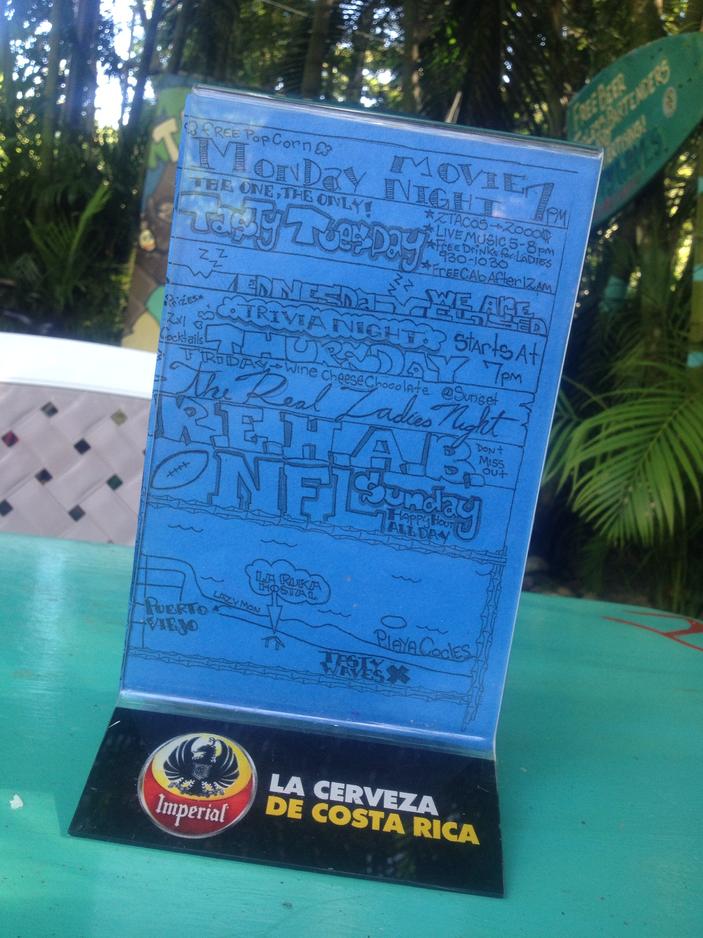 FREE POPCORN
MONDAY MOVIE NIGHT 7PM
THE ONE, THE ONLY!
TASTY TUESDAY
★2 TACOS → 2000₡
★LIVE MUSIC 5-8pm
★FREE DRINKS FOR LADIES
930-1030
★FREE CAB AFTER 12am
ZZZ
WEDNESDAY
ZZZ
WE ARE
CLOSED
PRIZES
2x1
Cocktails
TRIVIA NIGHT
THURSDAY
STARTS AT
7pm
FRIDAY → WINE CHEESE CHOCOLATE @SUNSET
The Real Ladies Night
R.E.H.A.B.
DON't
MISS
OUt
NFL Sunday
HAPPY HOUR
ALL DAY
LA RUKA
HOSTAL
LAZY MON
PUERTO
VIEJO
PLAYA COCLES
TASTY
WAVES X
Imperial
LA CERVEZA
DE COSTA RICA
FREE BEER
BARTENDERS